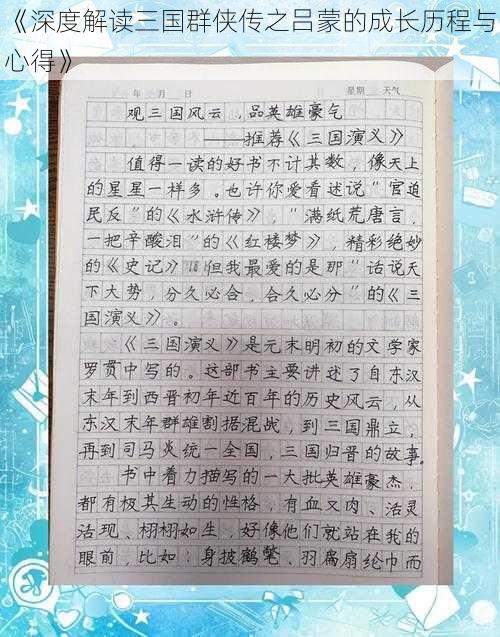 《深度解读三国群侠传之吕蒙的成长历程与
心得》
年 月 日 星期 天气
观三国风云，品英雄豪气
——推荐《三国演义》
值得一读的好书不计其数，像天上
的星星一样多。也许你爱看述说“官迫
民反”的《水浒传》，“满纸荒唐言，
一把辛酸泪”的《红楼梦》，精彩绝妙
的《史记》但我最爱的是那“话说天
下大势，分久必合，合久必分”的《三
国演义》。
《三国演义》是元末明初的文学家
罗贯中写的。这部书主要讲述了自东汉
末年到西晋初年近百年的历史风云，从
东汉末年群雄割据混战，到三国鼎立，
再到司马炎统一全国，三国归晋的故事。
书中着力描写的一大批英雄豪杰，
都有极其生动的性格，有血又肉、活灵
活现、栩栩如生，好像他们就站在我的
眼前，比如：身披鹤氅、羽扇纶巾而